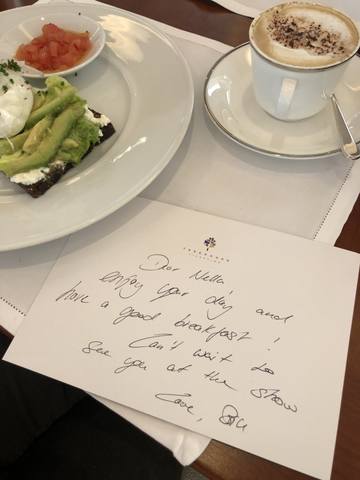 Dear Nella!
enjoy your day and
have a good breakfast!
Can't wait to
see you at the show
Love,